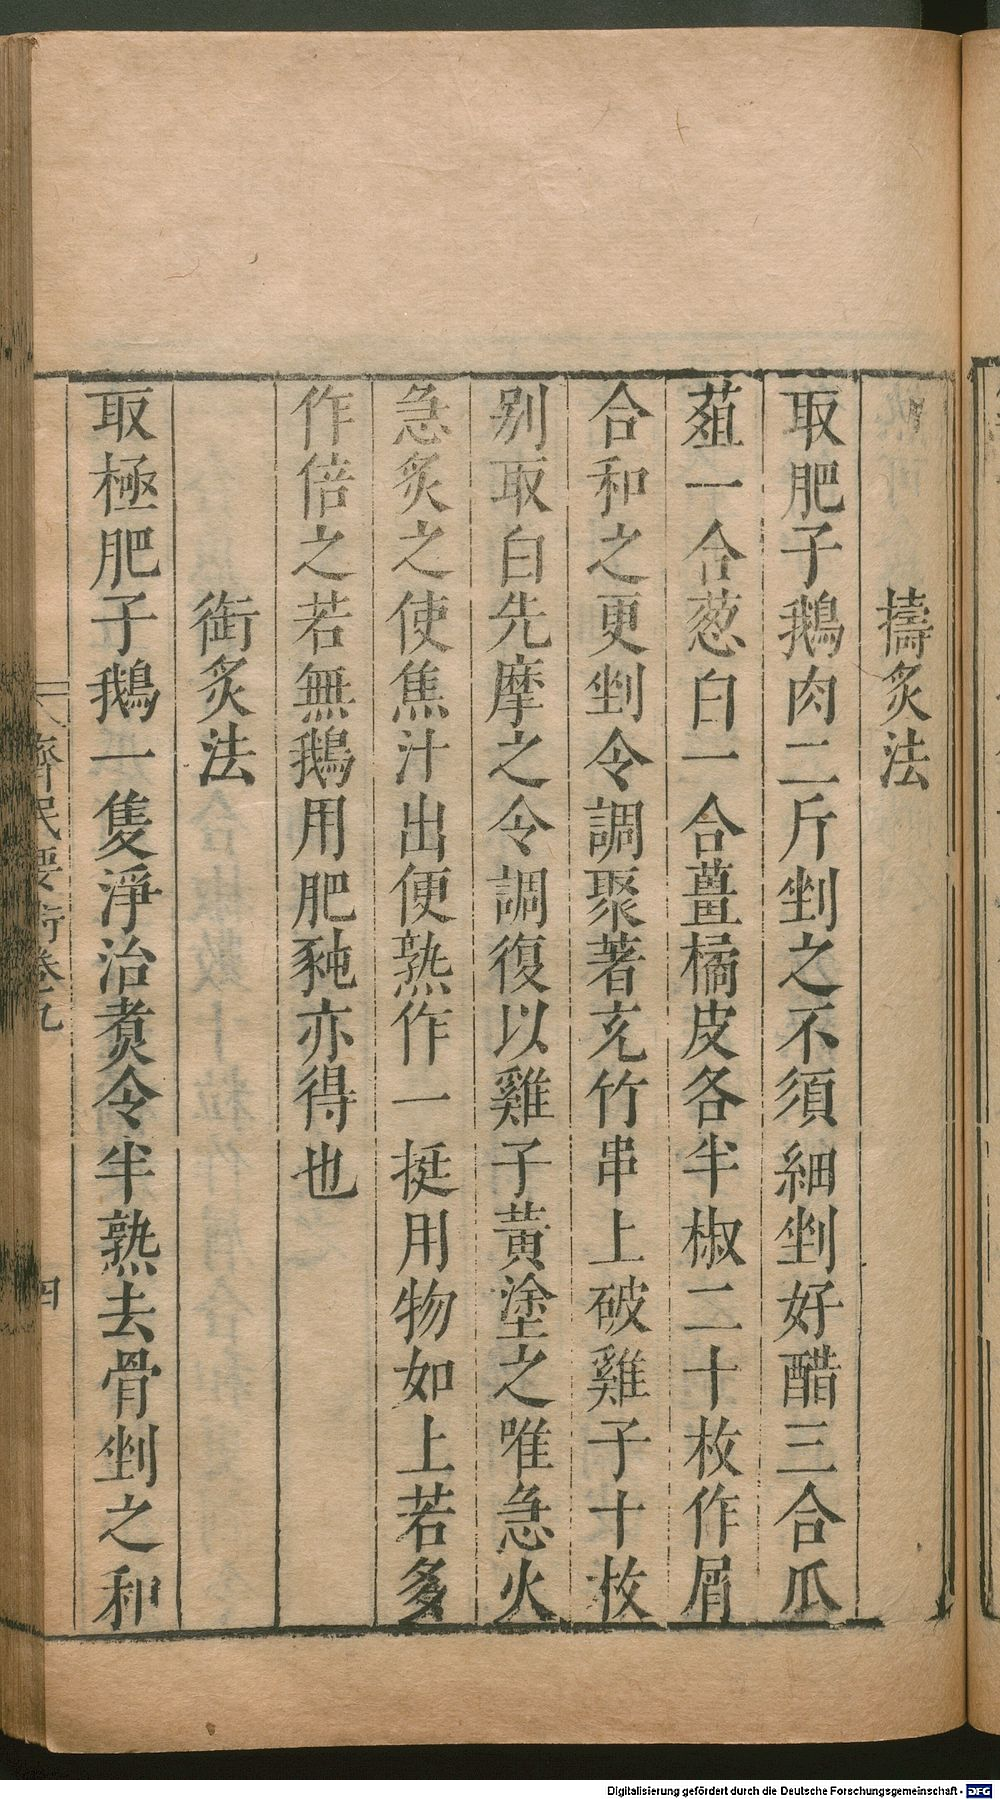 擣炙法
取肥子鵝肉二斤剉之不須細剉好醋三合瓜
葅一合葱白一合薑橘皮各半椒二十枚作屑
合和之更剉令調聚著充竹串上破雞子十枚
别取白先摩之令調復以雞子黃塗之唯急火
急炙之使焦汁出便熟作一挺用物如上若多
作倍之若無鵝用肥㹠亦得也
銜炙法
取極肥子鵝一隻淨治煑令半熟去骨剉之和
齊民要術卷九
四
Digitalisierung gefördert durch die Deutsche Forschungsgemeinschaft - DFG